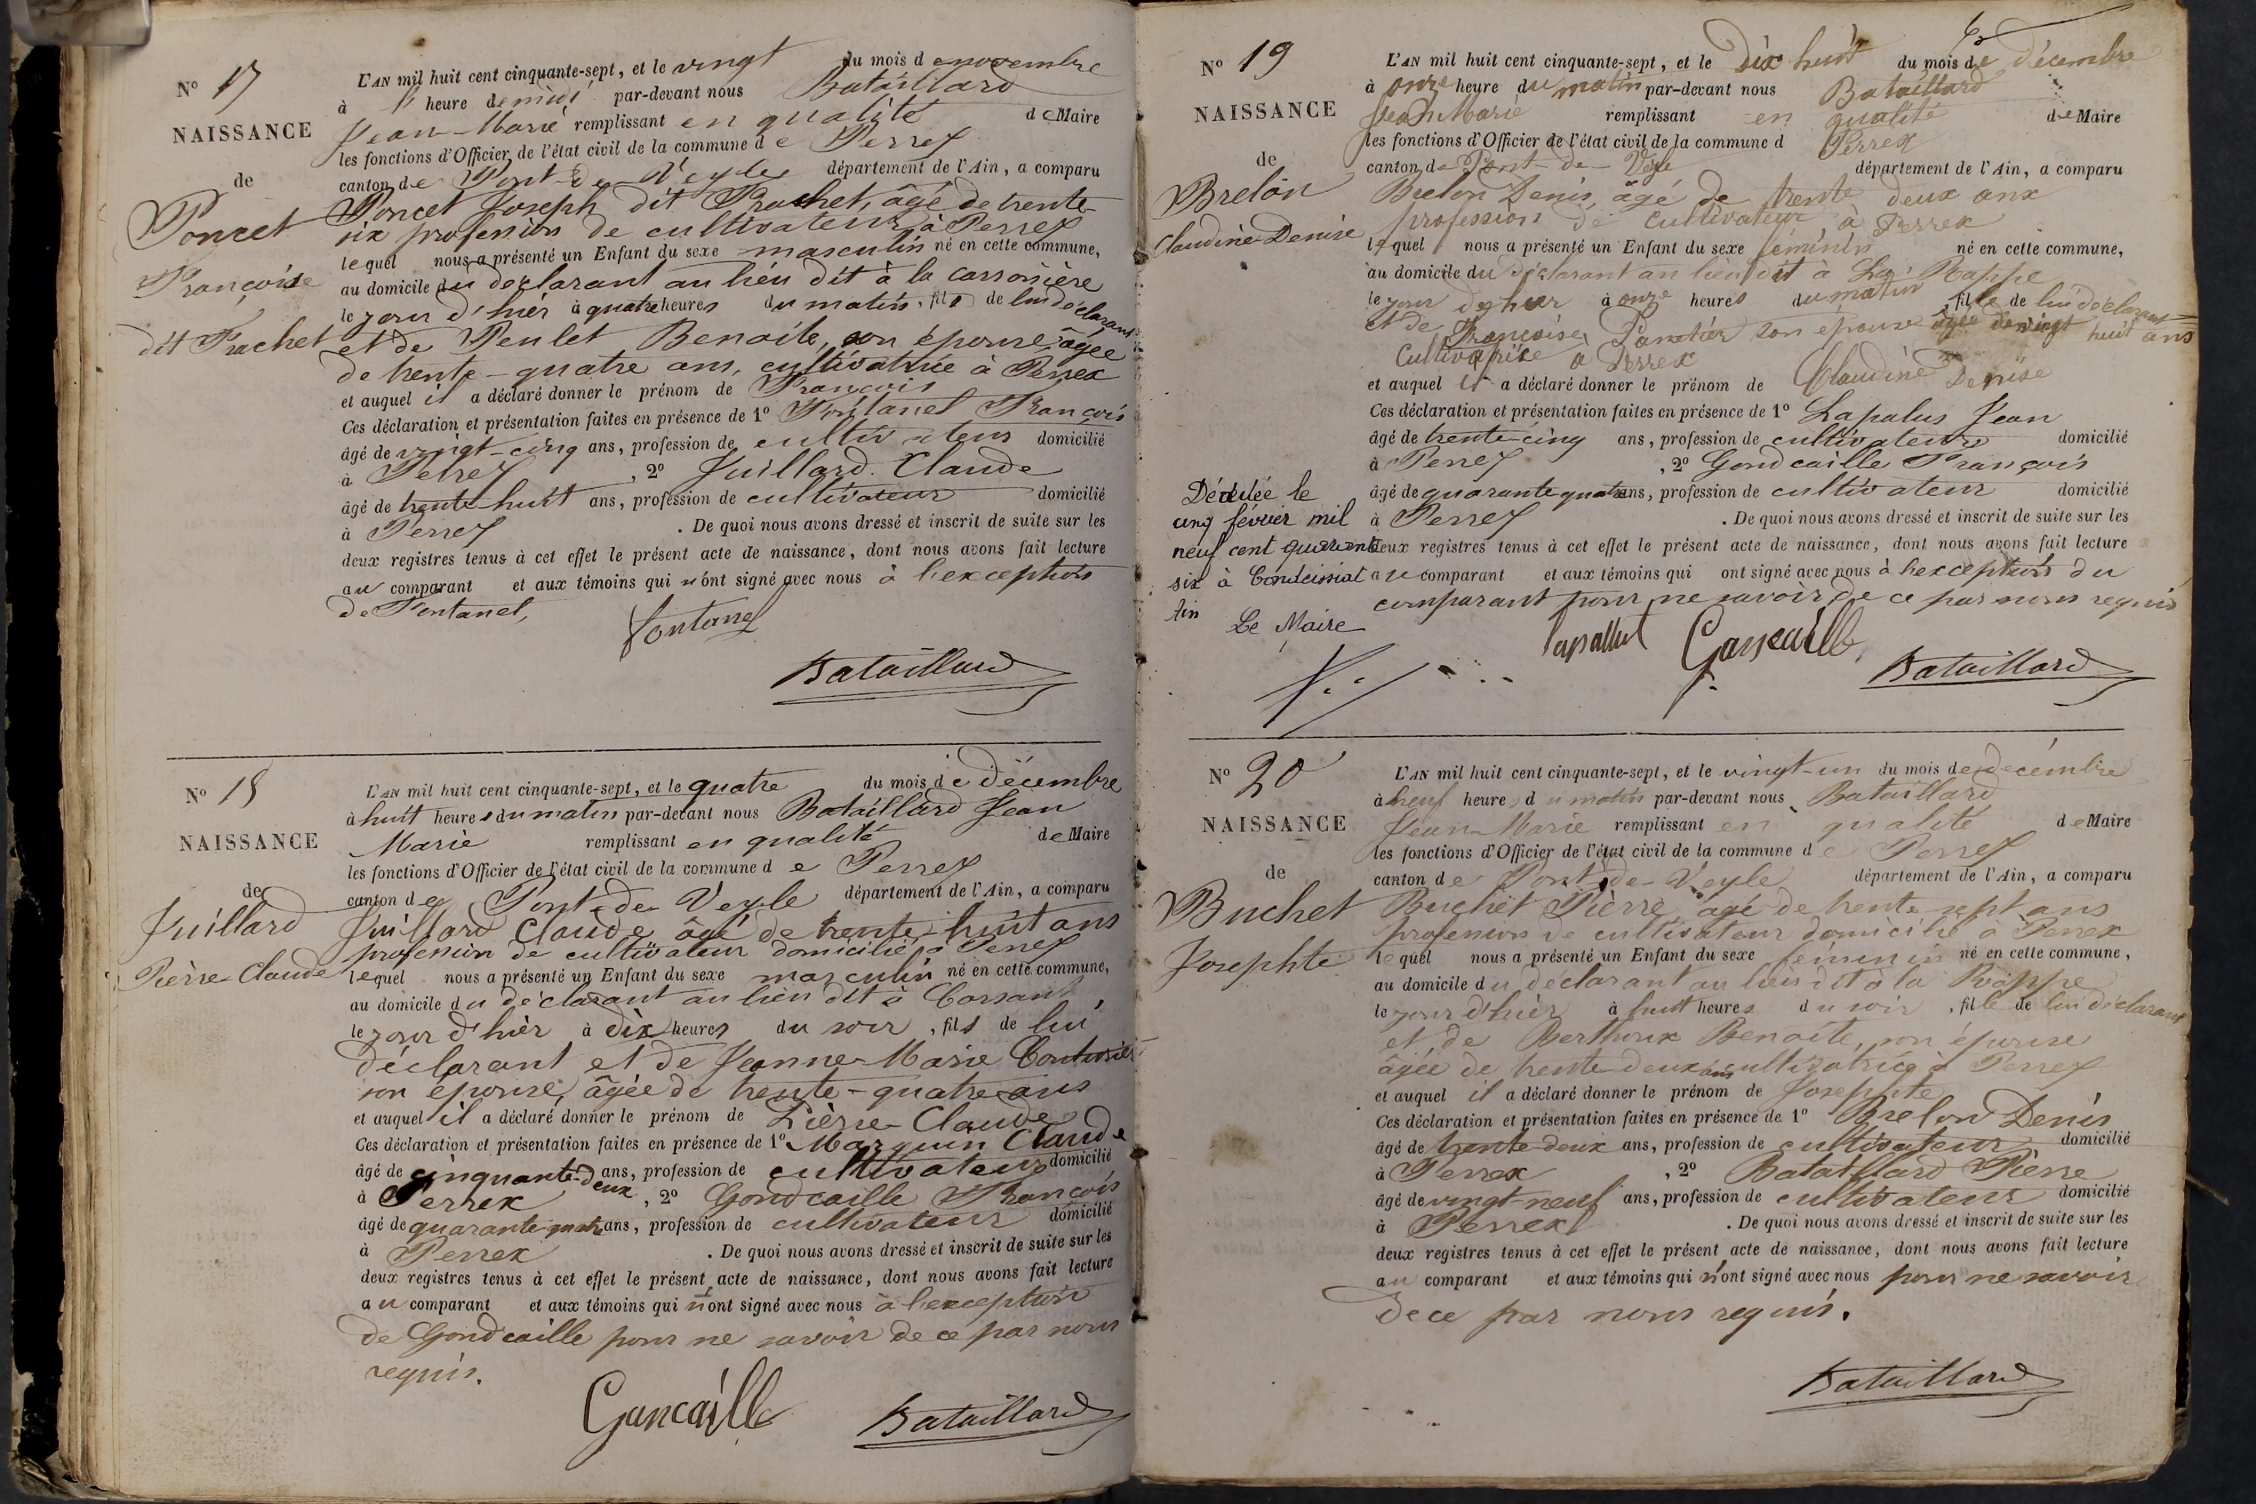 Nº 17
NAISSANCE
de
Poncet
Françoise
dit Frachet
L'AN mil huit cent cinquante-sept, et le vingt du mois de novembre
à l' heure de midi par-devant nous Bataillard
Jean-Marie remplissant en qualité de Maire
les fonctions d'Officier de l'état civil de la commune de Perrex
canton de Pont-de-Veyle département de l'Ain, a comparu
Poncet Joseph dit Frachet, âgé de trente-
six profession de cultivateur à Perrex
lequel nous a présenté un Enfant du sexe masculin né en cette commune,
au domicile du déclarant au lieu dit à la carronière
le jour d'hier à quatre heures du matin, fils de lui déclarant
et de Penlet Benoite, son épouse, âgée
de trente-quatre ans, cultivatrice à Perrex
et auquel il a déclaré donner le prénom de François
Ces déclaration et présentation faites en présence de 1º Fontanel François
âgé de vingt-cinq ans, profession de cultivateur domicilié
à Perrex, 2º Juillard Claude
âgé de trente-huit ans, profession de cultivateur domicilié
à Perrex. De quoi nous avons dressé et inscrit de suite sur les
deux registres tenus à cet effet le présent acte de naissance, dont nous avons fait lecture
au comparant et aux témoins qui n'ont signé avec nous à l'exception
de Fontanel,
Fontanel
Bataillard
Nº 18
NAISSANCE
de
Juillard
Pierre-Claude
L'AN mil huit cent cinquante-sept, et le quatre du mois de décembre
à huit heures du matin par-devant nous Bataillard Jean
Marie remplissant en qualité de Maire
les fonctions d'Officier de l'état civil de la commune de Perrex
canton de Pont-de-Veyle département de l'Ain, a comparu
Juillard Claude âgé de trente-huit ans
profession de cultivateur domicilié à Perrex
lequel nous a présenté un Enfant du sexe masculin né en cette commune,
au domicile du déclarant au lieu dit à Corsant,
le jour d'hier à dix heures du soir, fils de lui
déclarant et de Jeanne-Marie Couturier
son épouse, âgée de trente-quatre ans
et auquel il a déclaré donner le prénom de Pierre-Claude
Ces déclaration et présentation faites en présence de 1º Marguin Claude
âgé de cinquante-deux ans, profession de cultivateur domicilié
à Perrex, 2º Gondcaille François
âgé de quarante-quatre ans, profession de cultivateur domicilié
à Perrex. De quoi nous avons dressé et inscrit de suite sur les
deux registres tenus à cet effet le présent acte de naissance, dont nous avons fait lecture
au comparant et aux témoins qui n'ont signé avec nous à l'exception
de Gondcaille pour ne savoir de ce par nous
requis.
Gancaille
Bataillard
Nº 19
NAISSANCE
de
Brelon
Claudine-Denise
Décédée le
cinq février mil
neuf cent quarante
six à Condeissiat
Ain
Le Maire
L'AN mil huit cent cinquante-sept, et le Dix-huit du mois de décembre
à onze heure du matin par-devant nous Bataillard
Jean Marie remplissant en qualité de Maire
les fonctions d'Officier de l'état civil de la commune d Perrex
canton de Pont-de-Veyle département de l'Ain, a comparu
Brelon Denis, âgé de trente deux ans
profession de cultivateur à Perrex
lequel nous a présenté un Enfant du sexe féminin né en cette commune,
au domicile du déclarant au lieu dit à La Rappe
le jour de hier à onze heures du matin, fille de lui déclarant
et de Françoise Panetier son épouse âgée de vingt huit ans
Cultivatrice à Perrex
et auquel il a déclaré donner le prénom de Claudine Denise
Ces déclaration et présentation faites en présence de 1º Lapalus Jean
âgé de trente-cinq ans, profession de cultivateur domicilié
à Perrex, 2º Gondcaille François
âgé de quarante quatre ans, profession de cultivateur domicilié
à Perrex. De quoi nous avons dressé et inscrit de suite sur les
deux registres tenus à cet effet le présent acte de naissance, dont nous avons fait lecture
au comparant et aux témoins qui ont signé avec nous à l'exception du
comparant pour ne savoir de ce par nous requis
Lapallut Gancaille
Bataillard
Nº 20
NAISSANCE
de
Buchet
Josephte
L'AN mil huit cent cinquante-sept, et le vingt-un du mois de décembre
à neuf heures du matin par-devant nous Bataillard
Jean-Marie remplissant en qualité de Maire
les fonctions d'Officier de l'état civil de la commune de Perrex
canton de Pont-de-Veyle département de l'Ain, a comparu
Buchet Pierre âgé de trente sept ans
profession de cultivateur domicilié à Perrex
lequel nous a présenté un Enfant du sexe féminin né en cette commune,
au domicile du déclarant au lieu dit à la Rappe
le jour d'hier à huit heures du soir, fille de lui déclarant
et de Berthoux Benoite, son épouse
âgée de trente-deux ans cultivatrice à Perrex
et auquel il a déclaré donner le prénom de Josephte
Ces déclaration et présentation faites en présence de 1º Brelon Denis
âgé de trente-deux ans, profession de cultivateur domicilié
à Perrex, 2º Bataillard Pierre
âgé de vingt-neuf ans, profession de cultivateur domicilié
à Perrex. De quoi nous avons dressé et inscrit de suite sur les
deux registres tenus à cet effet le présent acte de naissance, dont nous avons fait lecture
au comparant et aux témoins qui n'ont signé avec nous pour ne savoir
de ce par nous requis.
Bataillard